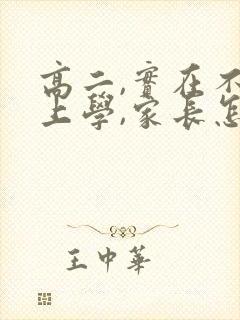 高二,實在不
上學,家長怎
王中華